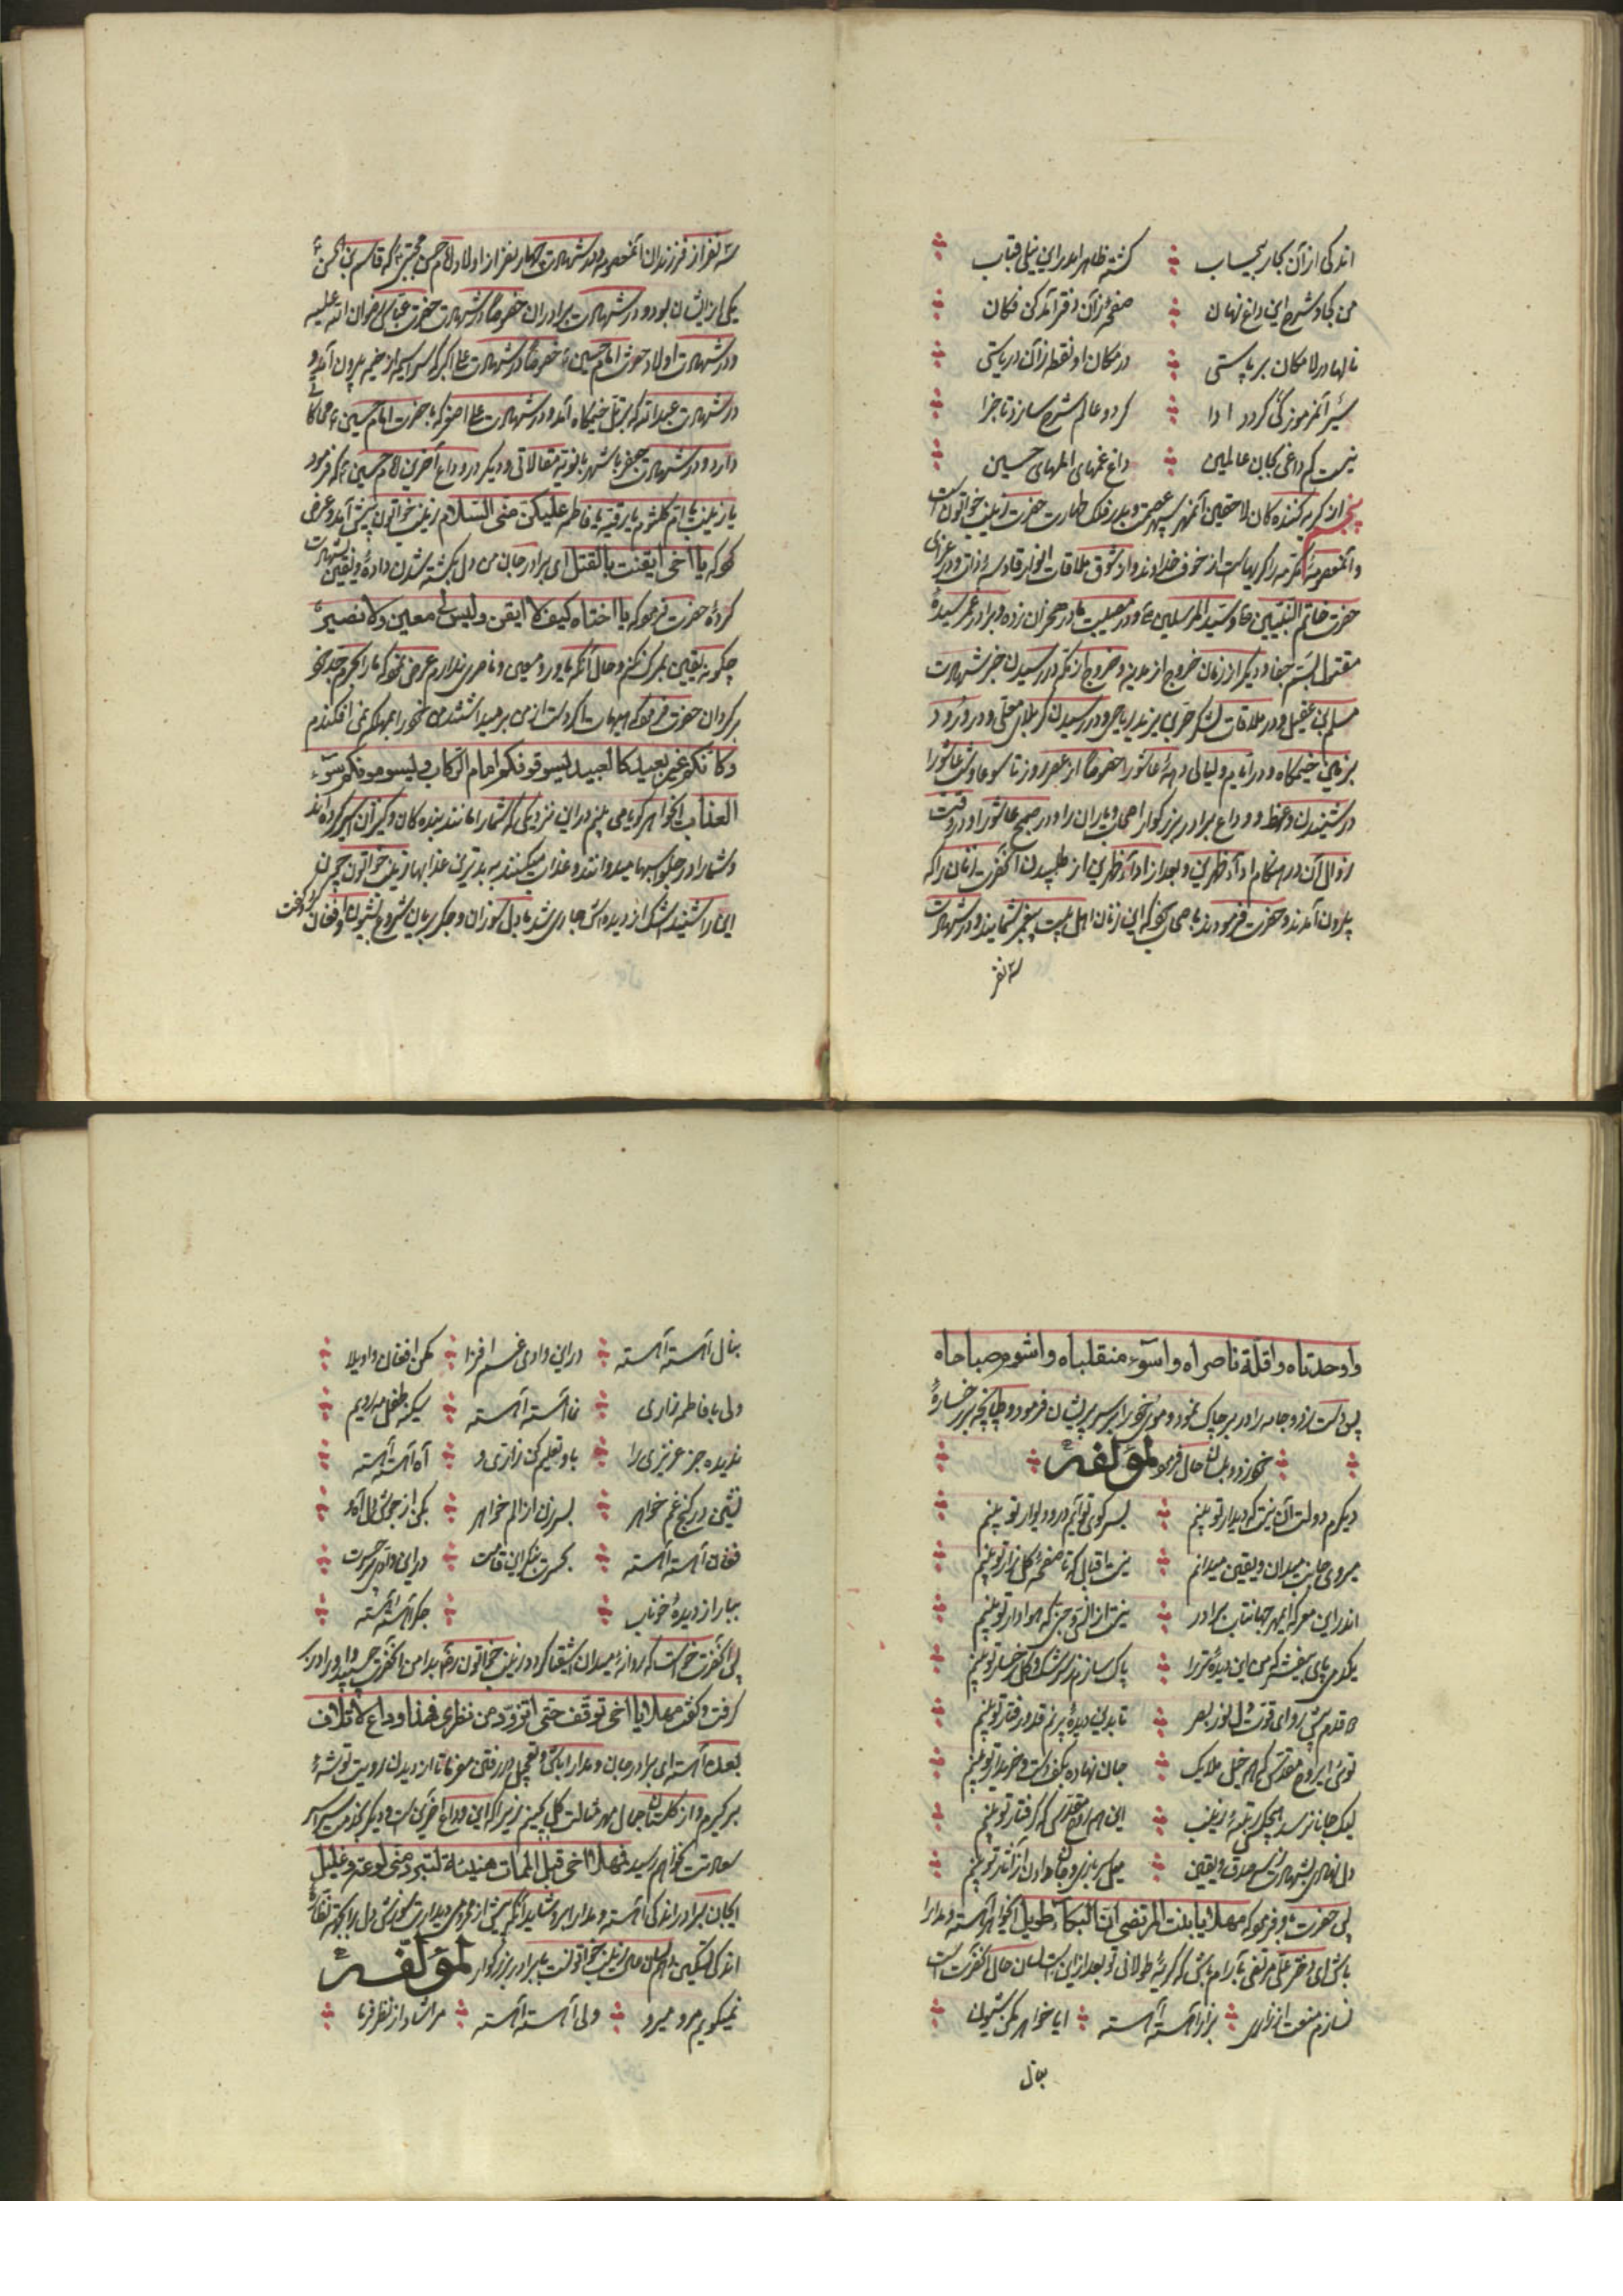 اندکی از آن بحار بیحساب ؞ کشته ظاهر اندر این نیلی قباب ؞
من کجا و شرح این داغ نهان ؞ صفحهٔ زآن دفتر آمد کن فکان ؞
نالها در لا مکان بر پاستی ؞ در مکان او نقطه زآن دریاستی ؞
سرّ آن رموز کی گردد ادا ؞ گر دو عالم شرح سازد تا جزا ؞
نیست کم داغی بجان عالمین ؞ داغ غمهای المهای حسین ؞
پنجم از گریه کننده کان لاحقین آنمهر سپهر عصمت و بدر فلک طهارت حضرت زینب خواتون است
و آنمعصومهٔ مکرمه را گریهاست از خوف خداوند و از شوق ملاقات انوار قادسهٔ ذات و در عزای
حضرت خاتم النبیین و سید المرسلین و در مصیبت مادر هجران زده و برادر غمر سیدهٔ
مقتول بسم جفا و دیگر از زمان خروج از مدینه و خروج از مکه و در رسیدن خبر شهادت
مسلم بن عقیل و در ملاقات لشکر حر بن یزید ریاحی و در رسیدن کربلای معلی و در ورود
بزمین خیمگاه و در ایام و لیالی دههٔ عاشورا خصوصا از عصر روز تاسوعا و شب عاشورا
در شنیدن وعظ و وداع برادر بزرگوار اصحاب و یاران را و در صبح عاشورا و در وقت
زوال آن در هنگام اداء ظهرین و بعد از اداء ظهرین از طلبیدن آنحضرت زنان را که
بیرون آمدند و حضرت فرمودند باصحاب که این زنان اهل بیت پیغمبر شمایند و در شهادت
سه نفر
سه نفر از فرزندان آنمعصومه و در شهادت چهار نفر از اولاد امام حسن مجتبی که قاسم بن الحسن
یکی از ایشان بود و در شهادت برادران خصوصا در شهادت حضرت عباس رضوان الله علیه
و در شهادت اولاد حضرت امام حسین خصوصا در شهادت علی اکبر که سراسیمه از خیمه بیرون آمد و
در شهادت عبدالله که بمقتل خیمگاه آمد و در شهادت علی اصغر که با حضرت امام حسین محاکاتی
دارد و در شهادت جعفر با شهربانو نیز مقالاتی و دیگر در وداع آخرین امام حسین که فرمود
یا زینب یا ام کلثوم یا رقیه یا فاطمه علیکن منی السلام زینب خواتون پیش آمد و عرض
کرد که یا اخی ایقنت بالقتل ای برادر جان من دل بکشته شدن دادهٔ و یقین بشهادت
کردهٔ حضرت فرمود که یا اختاه کیف لا ایقن ولیس لی معین ولا نصیر
چگونه یقین بمرگ نکنم و حال آنکه یاور و معین و ناصری ندارم عرض نمود که ما را بحرم جدت
برگردان حضرت فرمود که هیهات اگر دست از من برمیداشتند من خود را بمهلکه نمی افکندم
وکانکم غیر بعید کالعبید یسوقونکم امام الرکاب ویسومونکم سوء
العذاب ایخواهر گویا می بینم در این نزدیکی که شما را مانند بنده کان و کنیزان اسیر کرده اند
و شما را در جلو اسبها میدوانند و عذاب میکنند به بدترین عذابها زینب خواتون چون
این را شنید اشک از دیده اش جاری شد با دل سوزان و جگر بریان شروع بشیون و فغان کرد و گفت
واوحدتاه واقلة ناصراه واسوء منقلباه واشوم صباحاه
پس دست زد و جامه را در بر چاک نمود و موی خود را بر سر پریشان فرمود و طپانچه بر رخسارهٔ
؞ ؞ خود زد و بلسان حال فرمود لمؤلفه ؞ ؞
دیگرم دولت آن نیست که دیدار تو بینم ؞ بسر کوی تو آیم در و دیوار تو بینم ؞
میروی جانب میدان و یقین میدانم ؞ نیست اقبال که تا صفحهٔ گلزار تو بینم ؞
اندر این معرکه ایمهر جهانتاب برادر ؞ نیست از انس و جن که هوادار تو بینم ؞
یکدمی پای بیفشار که من این دیدهٔ تر را ؞ پاک سازم ز سرشک و گل رخسار تو بینم ؞
قدم پیش رو ای قوت دل نور بصر ؞ تا بدین دیدهٔ پر نم قد و رفتار تو بینم ؞
توئی ای روح مقدس که همه خیل ملایک ؞ جان نهاده بکف دست و خریدار تو بینم ؞
لیک جانا نرسد هیچکسی رتبهٔ زینب ؞ این همه روح مقدس که گرفتار تو بینم ؞
دل نهادی بشهادت ز سر صدق و یقین ؞ میل سربازی و جان دادن از آثار تو بینم ؞
پس حضرت باو فرمود که مهلا یا بنت المرتضی ان البکاء طویل ایخواهر آهسته و مدارا
باش ای دختر علی مرتضی آرام باش که گریهٔ طولانی تو بعد از این است لسان حال آنحضرت است
نسازم منعت از زاری ؞ بزار آهسته آهسته ؞ ایا خواهر مکن شیون ؞
بنال
بنال آهسته آهسته ؞ در این وادی غم افزا ؞ مکن افغان و اویلا ؞
ولی با فاطمه زاری ؞ نما آهسته آهسته ؞ سکینه طفل مه رویم ؞
ندیده جز عزیزی را ؞ باو تعلیم کن زاری و ؞ آه آهسته آهسته
نشین در کنج غم خواهر ؞ بسر زن از الم خواهر ؞ بکن از جوش دل آه و ؞
فغان آهسته آهسته ؞ بحسرت بنگر این قامت ؞ در این وادی حسرت ؞
ببار از دیدهٔ خوناب ؞ ؞ جگر آهسته آهسته ؞
پس آنحضرت خواست که روانهٔ میدان اشقیا گردد زینب خواتون بدامن آنحضرت چسبید و برادر را در بر
گرفت و گفت مهلا یا اخی توقف حتی اتزود من نظری فهذا وداع لا تلاق
بعده آهسته ای برادر جان و مدارا باش و تعجیل در رفتن مفرما تا از دیدن رویت توشهٔ
برگیرم و از گلستان جمال مهر مثالت گلی بچینم زیرا که این وداع آخرین است و دیگر بخدمت سراسر
سعادتت نخواهم رسید فمهلا اخی قبل الممات هنیئة لتبرد منی لوعة وغلیل
ایجان برادر اندکی آهسته و مدارا برو شاید آنکه پیش از محرومی دیدارت سوزش دل را بجرعهٔ نظارهٔ
اندکی تسکین دهم لسان حال زینب خواتونست با برادر بزرگوار لمؤلفه
نمیگویم مرو میرو ؞ ولی آهسته آهسته ؞ مرا شاد از نظر فرما ؞